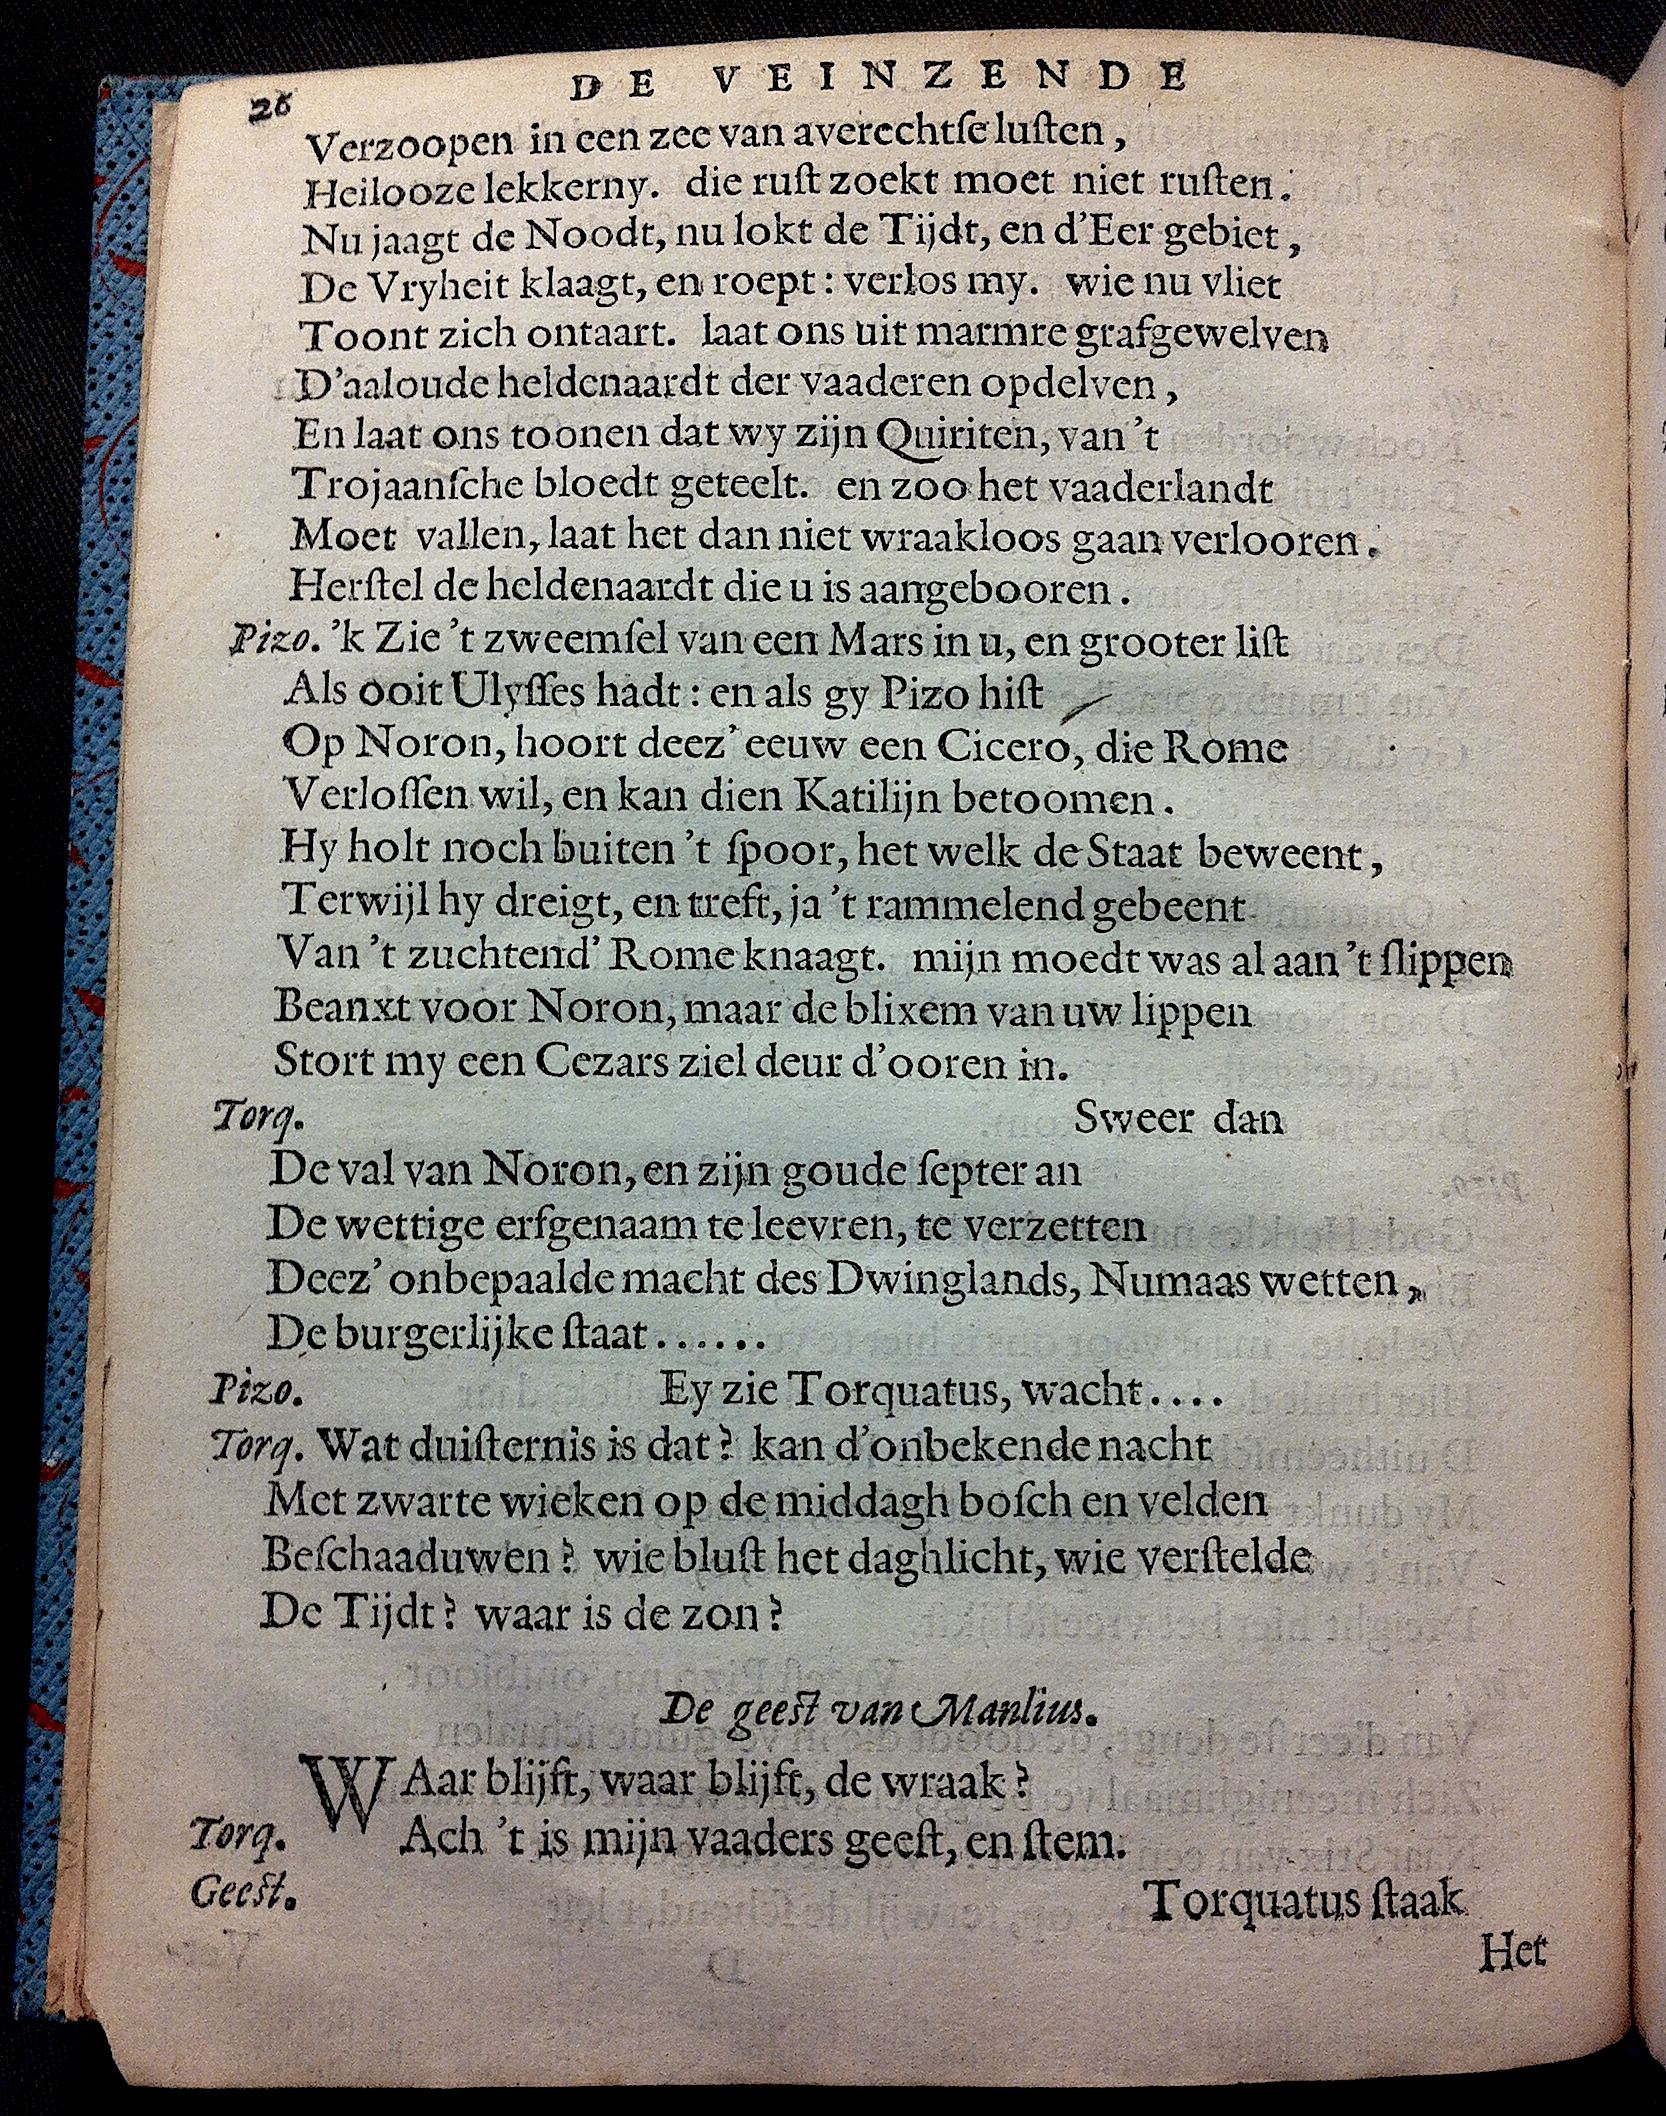 26
DE VEINZENDE
Verzoopen in een zee van averechtſe luſten,
Heilooze lekkerny. die ruſt zoekt moet niet ruſten.
Nu jaagt de Noodt, nu lokt de Tijdt, en d'Eer gebiet,
De Vryheit klaagt, en roept: verlos my. wie nu vliet
Toont zich ontaart. laat ons uit marmre grafgewelven
D'aaloude heldenaardt der vaaderen opdelven,
En laat ons toonen dat wy zijn Quiriten, van 't
Trojaanſche bloedt geteelt. en zoo het vaaderlandt
Moet vallen, laat het dan niet wraakloos gaan verlooren.
Herſtel de heldenaardt die u is aangebooren.
Pizo. 'k Zie 't zweemſel van een Mars in u, en grooter liſt
Als ooit Ulyſſes hadt: en als gy Pizo hiſt
Op Noron, hoort deez' eeuw een Cicero, die Rome
Verloſſen wil, en kan dien Katilijn betoomen.
Hy holt noch buiten 't ſpoor, het welk de Staat beweent,
Terwijl hy dreigt, en treft, ja 't rammelend gebeent
Van 't zuchtend' Rome knaagt. mijn moedt was al aan 't ſlippen
Beanxt voor Noron, maar de blixem van uw lippen
Stort my een Cezars ziel deur d'ooren in.
Torq. Sweer dan
De val van Noron, en zijn goude ſepter an
De wettige erfgenaam te leevren, te verzetten
Deez' onbepaalde macht des Dwinglands, Numaas wetten,
De burgerlijke ſtaat......
Pizo. Ey zie Torquatus, wacht....
Torq. Wat duiſternis is dat? kan d'onbekende nacht
Met zwarte wieken op de middagh boſch en velden
Beſchaaduwen? wie bluſt het daghlicht, wie verſtelde
De Tijdt? waar is de zon?
De geeſt van Manlius.
WAar blijft, waar blijft, de wraak?
Torq. Ach 't is mijn vaaders geeſt, en ſtem.
Geeſt. Torquatus ſtaak
Het